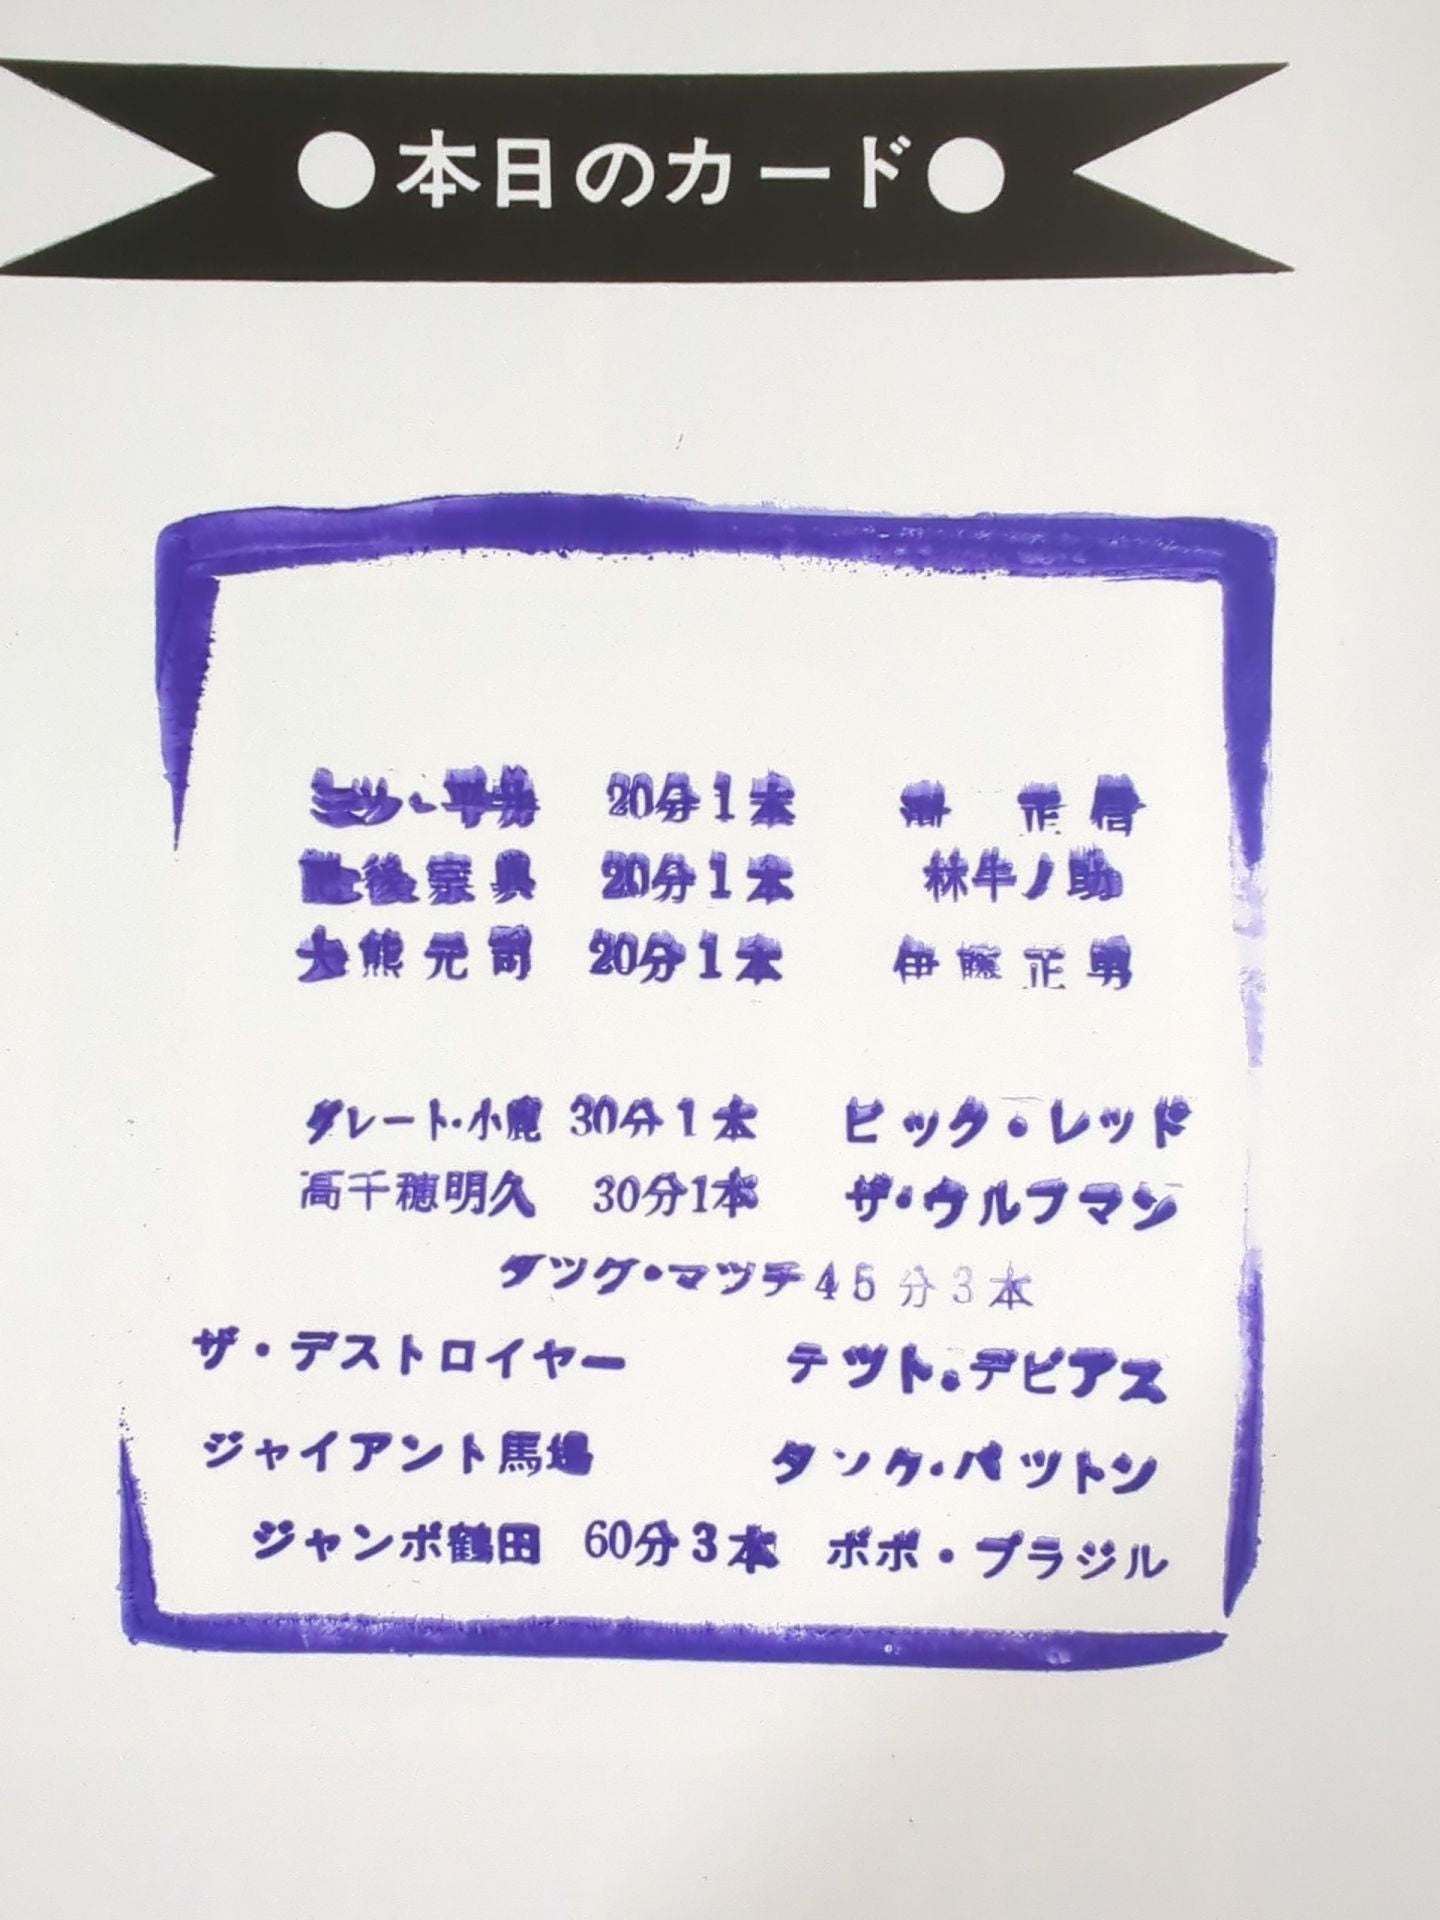 ●本日のカード●
ミツ・平井 20分1本 淵 正信
肥後宗典 20分1本 林牛ノ助
大熊元司 20分1本 伊藤正男
グレート・小鹿 30分1本 ビック・レッド
高千穂明久 30分1本 ザ・ウルフマン
タツグ・マツチ45分3本
ザ・デストロイヤー テツト・デビアス
ジャイアント馬場 タンク・パツトン
ジャンボ鶴田 60分3本 ボボ・ブラジル